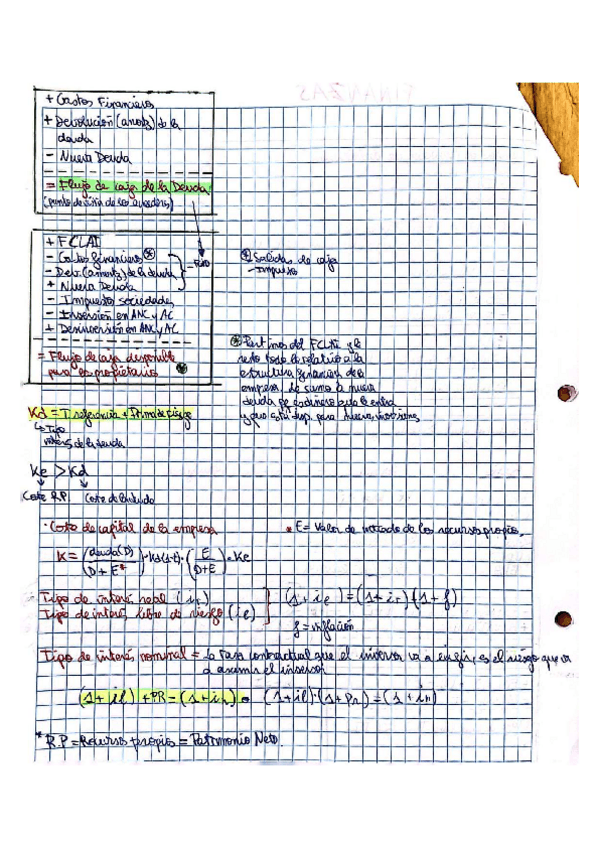 FINANZAS
+ Gastos Financieros
+ Devolución (amortz) de la
deuda
- Nueva Deuda
= Flujo de caja de la Deuda
(punto de vista de los acreedores)
+ FCLAI
- Gastos financieros *
- Dev. (amortz) de la deuda
+ Nueva Deuda
- Impuesto sociedades
- Inversión en ANC y AC
+ Desinversión en ANC y AC
= Flujo de caja disponible
para los propietarios *
* Salidas de caja
- Impuesto
* Partimos del FCLAI y le
resto todo lo relativo a la
estructura financiera de la
empresa. Le sumo la nueva
deuda pq es dinero que le entra
y que está disp. para nuevas inversiones
Kd = T referencia + Prima de riesgo
↳ Tipo
interés de la deuda
Ke > Kd
↓ ↓
Coste R.P. Coste de la deuda
· Coste de capital de la empresa
* E = Valor de mercado de los recursos propios.
K = (deuda (D) / D + E*) · Kd (1-t) · (E / D+E) · Ke
Tipo de interés real (ir)
Tipo de interés libre de riesgo (il)
(1 + il) = (1 + ir) (1 + f)
f = inflación
Tipo de interés nominal = La tasa contractual que el inversor va a exigir, es el riesgo que va
a asumir el inversor
(1 + il) + PR = (1 + in) = (1 + il) · (1 + Pr) = (1 + in)
* R.P = Recursos propios = Patrimonio Neto.